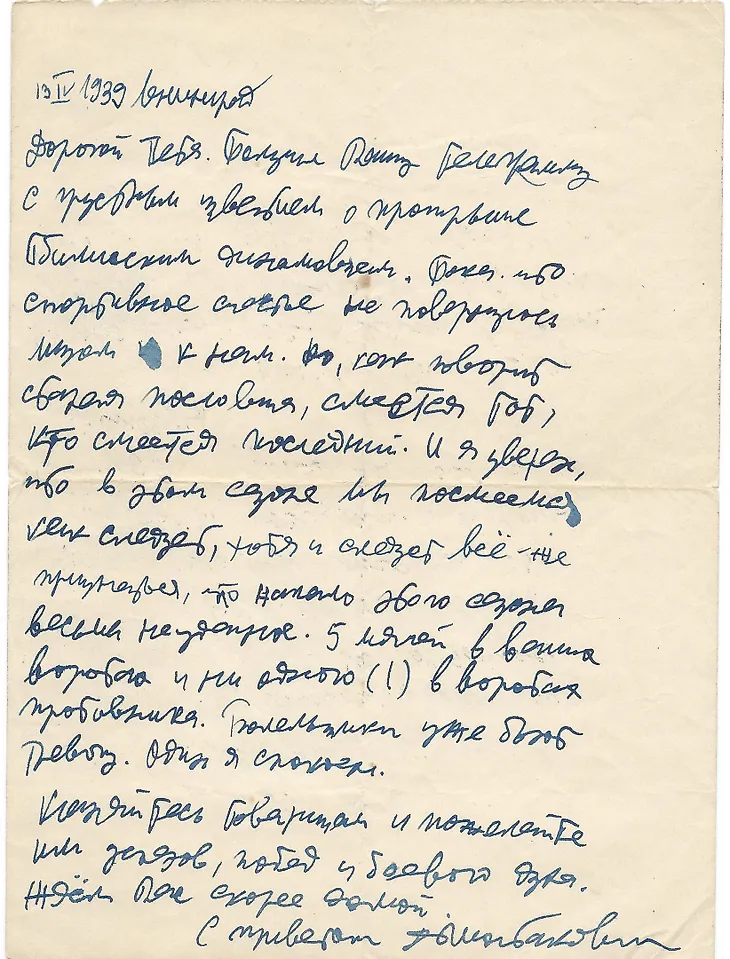 13 IV 1939 Ленинград
Дорогой Петя. Получил Вашу телеграмму
с грустным известием о проигрыше
Тбилисским динамовцам. Пока что
спортивное счастье не повернулось
лицом к нам. Но, как говорит
старая пословица, смеётся тот,
кто смеётся последний. И я уверен,
что в этом сезоне мы посмеёмся
как следует, хотя и следует всё-же
признаться, что начало этого сезона
весьма неудачное. 5 мячей в ваши
ворота и ни одного (!) в ворота
противника. Болельщики уже бьют
тревогу. Один я спокоен.
Кланяйтесь товарищам и пожелайте
им успехов, побед и боевого духа.
Ждём Вас скорее домой.
С приветом